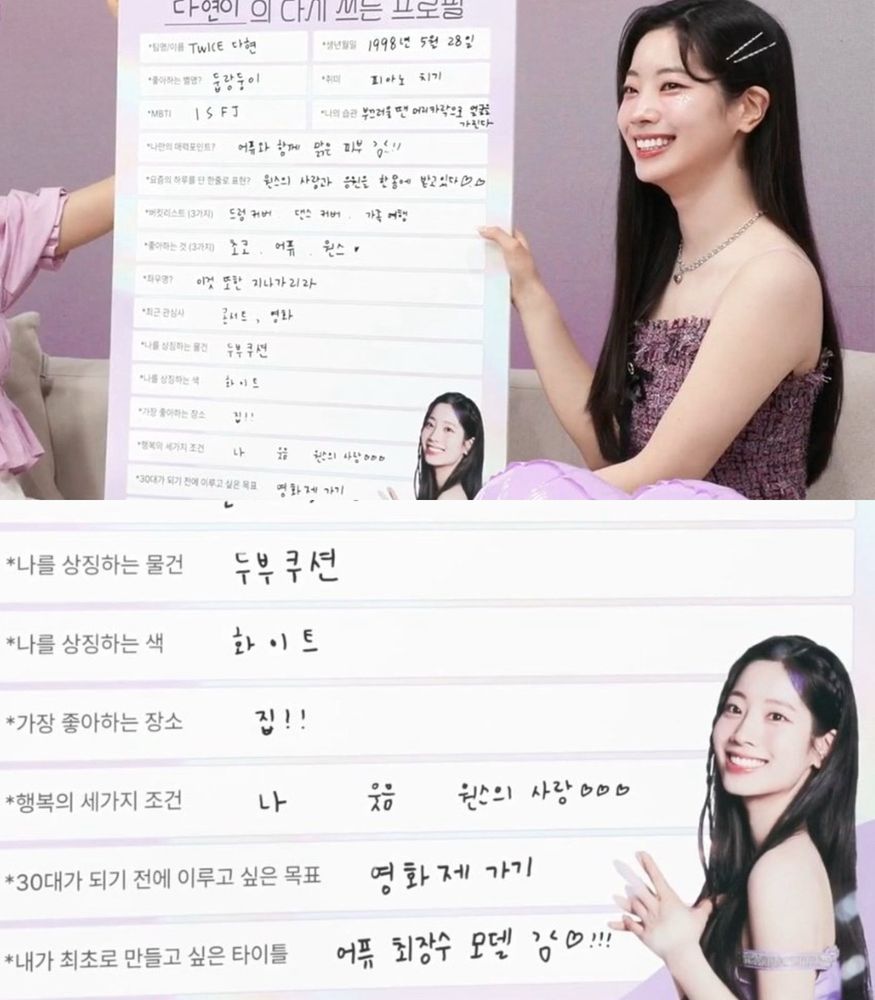 다현이의 다시 쓰는 프로필
*팀명/이름 TWICE 다현
*생년월일 1998년 5월 28일
*좋아하는 별명? 둡랑둥이
*취미 피아노 치기
*MBTI ISFJ
*나의 습관 부끄러울 땐 머리카락으로 얼굴을 가린다
*나만의 매력포인트? 어퓨와 함께 맑은 피부
*요즘의 하루를 단 한줄로 표현? 원스의 사랑과 응원을 한몸에 받고있다♡.♡
*버킷리스트 (3가지) 드럼 커버 . 댄스 커버 . 가족 여행
*좋아하는 것 (3가지) 초코 . 어퓨 . 원스 ♥
*좌우명? 이것 또한 지나가리라
*최근 관심사 콘서트, 영화
*나를 상징하는 물건 두부쿠션
*나를 상징하는 색 화이트
*가장 좋아하는 장소 집!!
*행복의 세가지 조건 나 웃음 원스의 사랑♡♡♡
*30대가 되기 전에 이루고 싶은 목표 영화제 가기
*나를 상징하는 물건 두부쿠션
*나를 상징하는 색 화이트
*가장 좋아하는 장소 집!!
*행복의 세가지 조건 나 웃음 원스의 사랑♡♡♡
*30대가 되기 전에 이루고 싶은 목표 영화제 가기
*내가 최초로 만들고 싶은 타이틀 어퓨 최장수 모델 감♡!!!